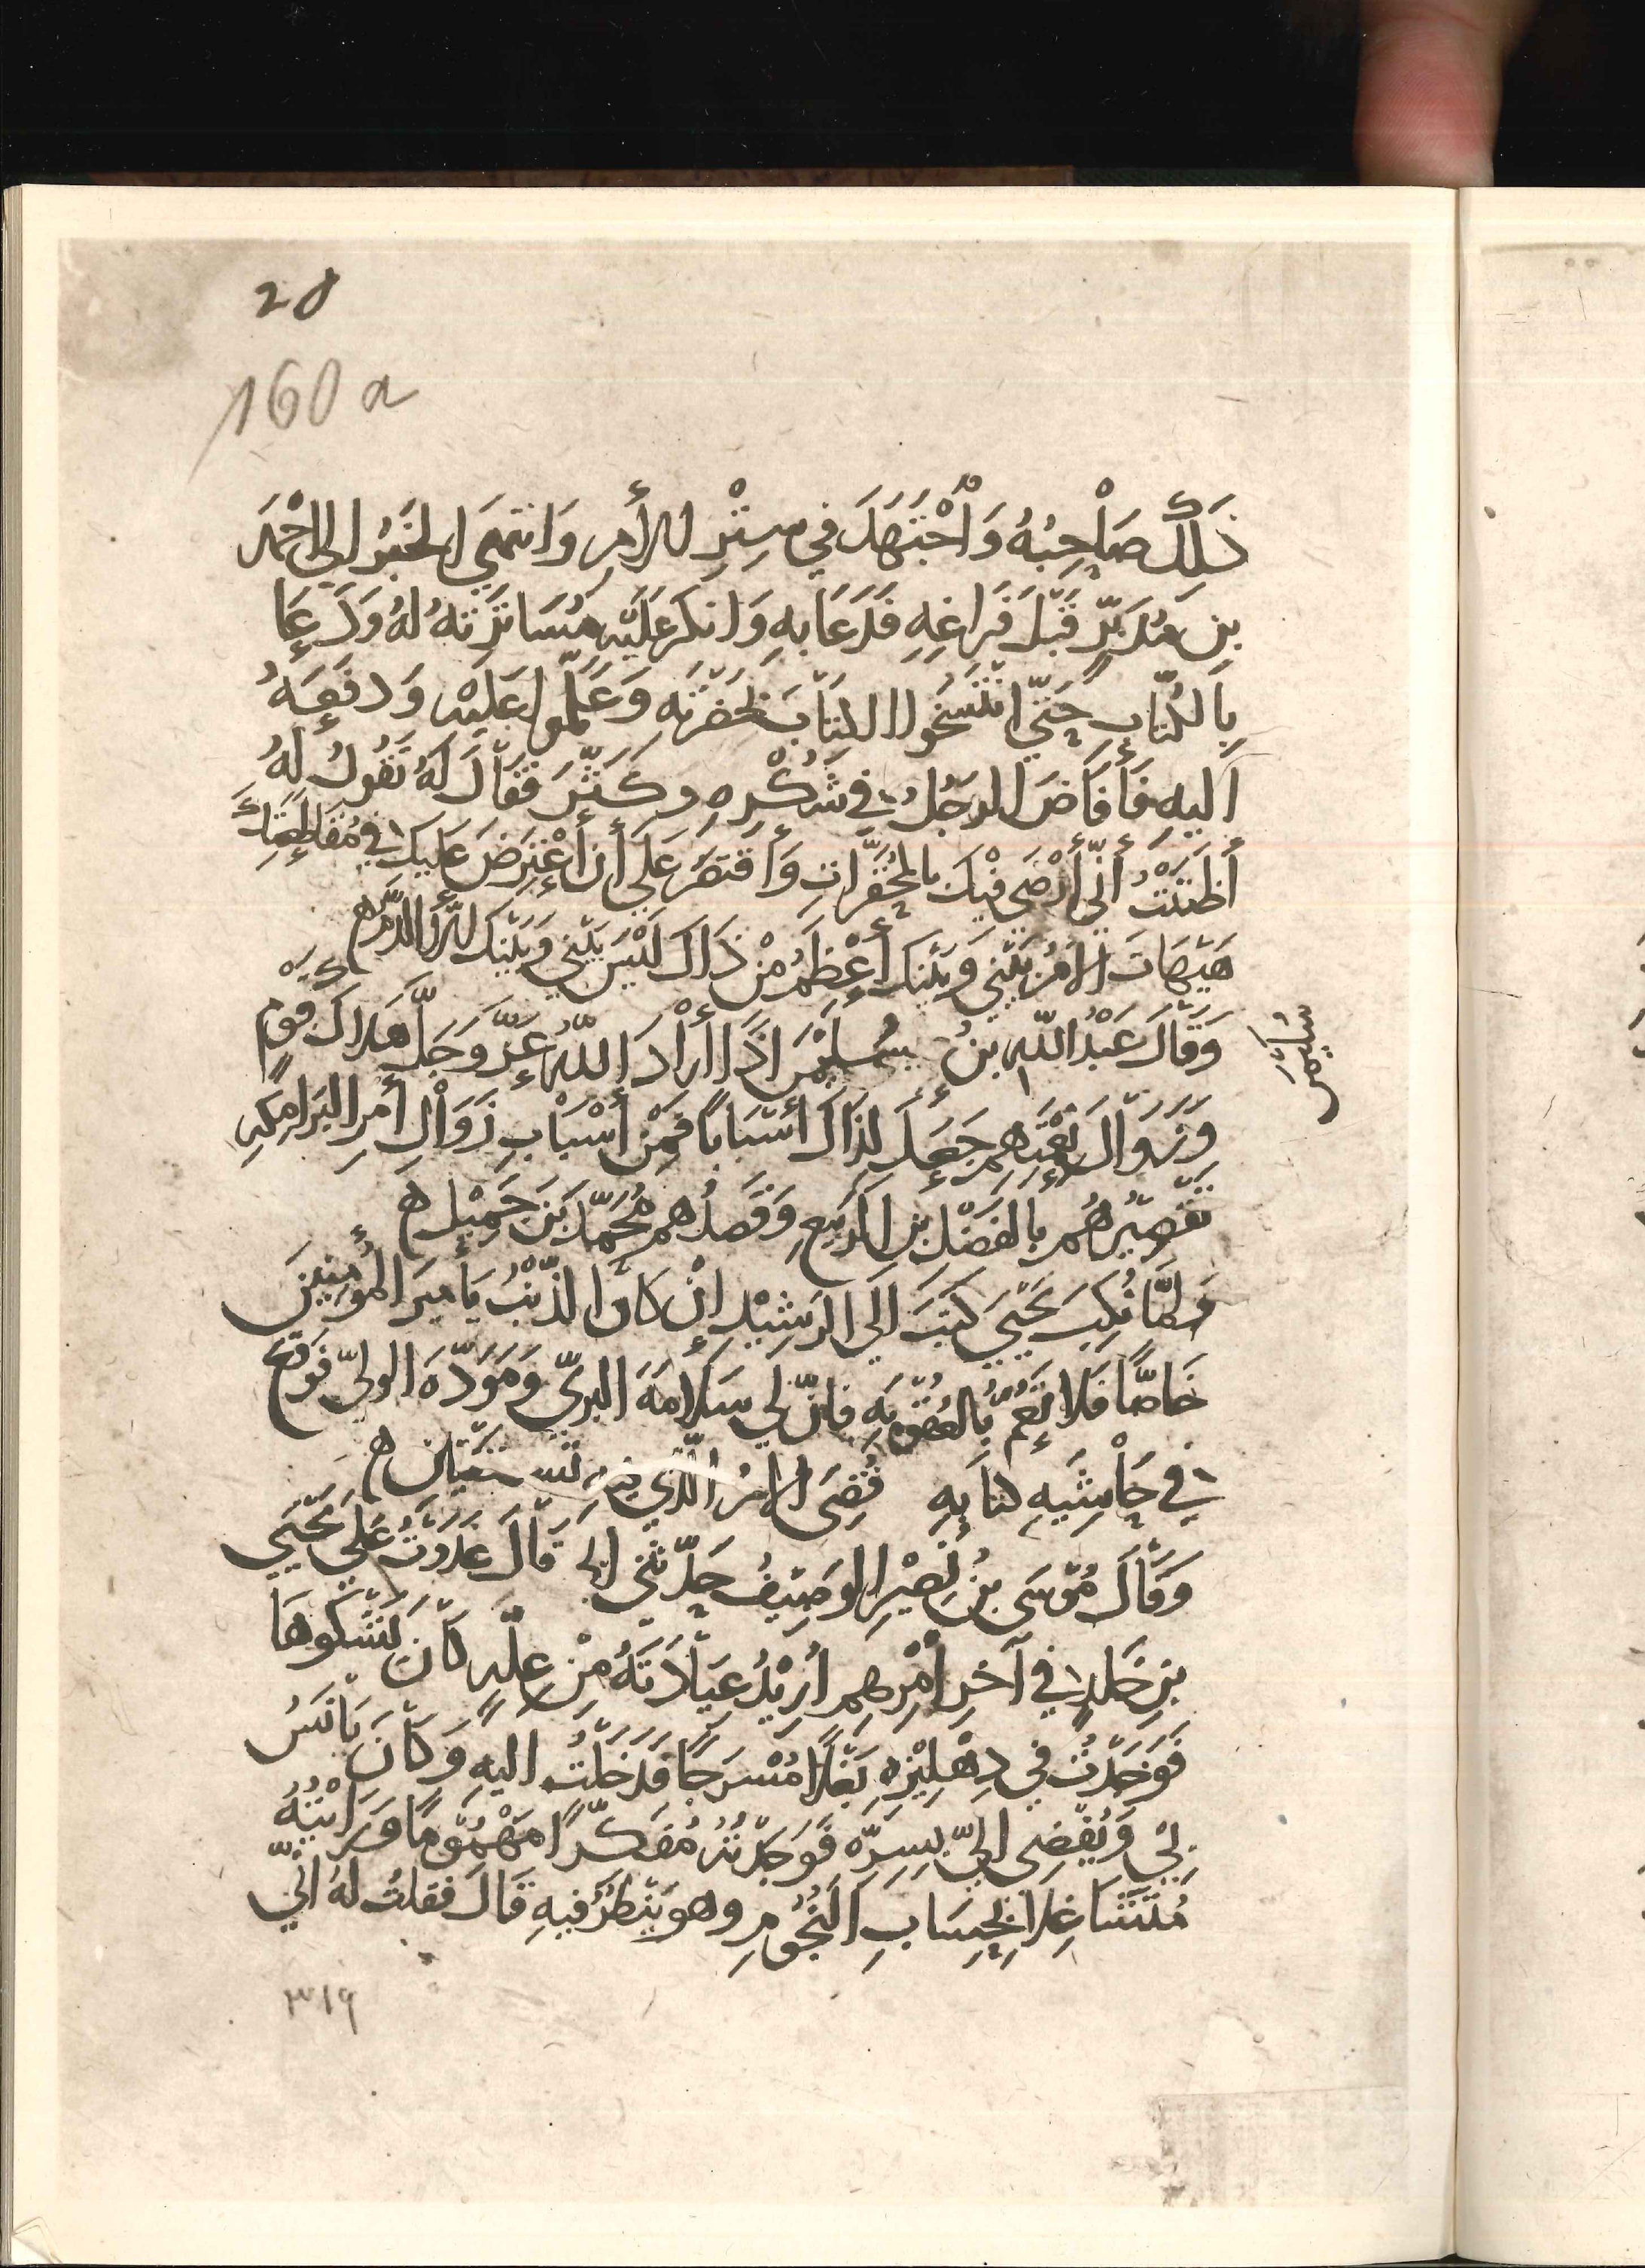 28
160 a
ذَلِكَ صَاحِبُهُ وَاُجْتَهَدَ في سِتْرِ الأَمرِ وَانتَهَى الخَبَرُ الى احْمَدَ
بنِ مُدَبّرٍ قَبْلَ فَرَاغِهِ فَدَعَا بهِ وَانكَرَ عَلَيْهِ مُسَاتَرَتهُ لهُ وَدَعَا
بِالكُتّابِ حَتّى انتَسَخُوا الكِتَابَ بحَضرَتهِ وَعَمِلُوا عَلَيْهِ وَدَفَعَهُ
اَليهِ فَأَفَاضَ الرجُلُ في شُكْرِهِ وكَثّرَ فَقَالَ لَهُ تَقُولُ لَهُ
أَظَنَنْتَ أَنّي أَرْضَى فيْكَ بالمُحَقَّرَاتِ وَأَقتَصِرُ عَلى أَن أَعْتَرِضَ عَلَيكَ في مُقَاطَعَتِكَ
هَيْهَاتَ الاَمرُ بَيْنِي وَبَيْنَكَ أَعْظَمُ مِنْ ذَاكَ لَيْسَ بَيْنِي وَبَيْنَكَ الاّ الدَّمُ ه
وَقَالَ عَبْدُ اللّهِ بنُ سُلَيْمَنَ اذَا أَرَادَ اللّهُ عَزَّ وَجَلَّ هَلاَكَ قَوْمٍ
سُلَيْمَن
وَزَوَالَ نِعْمَتِهِم جَعَلَ لِذَاكَ أَسْبَاباً فَمِنْ أَسْبَابِ زَوَالِ أَمرِ البَرَامِكَهِ
تَقْصِيْرهُم بالفَضْلِ بنِ الرَبِيعِ وَقَصْدُهم مُحَمّدَ بنَ جَمِيْلٍ ه
وَلمَّا نُكِبَ يَحْيَى كَتَبَ الَى الرَشِيْدِ انْ كَانَ الذّنْبُ يَأَميرَ المُؤمِنِينَ
خَاصًّا فَلا تَعُمَّ بالعُقُوبَهِ فانّ لي سَلاَمَهَ البَرِيّ وَمَوَدّهَ الوليّ فَوَقّعَ
في حَاشِيَهِ كتَابِهِ قُضِيَ الامرُ الّذي فيهِ تَسْتَفْتِيَانِ ه
وَقَالَ مُوْسَى بنُ نُصَيْرٍ الوَصِيْفُ حَدّثَني ابي قَالَ غَدَوتُ عَلى يَحْيَى
بنِ خَالدٍ في آخرِ أَمْرِهِم أُرِيْدُ عِيَادَتَهُ مِنْ عِلّهٍ كَانَ يَشْكُوهَا
فَوَجَدْتُ في دِهْلِيْزِهِ بَغْلاً مُسْرَجًا فَدَخَلْتُ اليهِ وَكَانَ يَانَسُ
بِي وَيُفْضِي اليّ بِسِرّهِ فَوَجَدْتُهُ مُفَكّرًا مَهْمُوْمًا وَرَاَيْتُهُ
مُتَشَاغِلاً بحِسَابِ النُجُوْمِ وهو يَنْظُرُ فيهِ قَالَ فقلتُ لهُ انّي
٣١٩